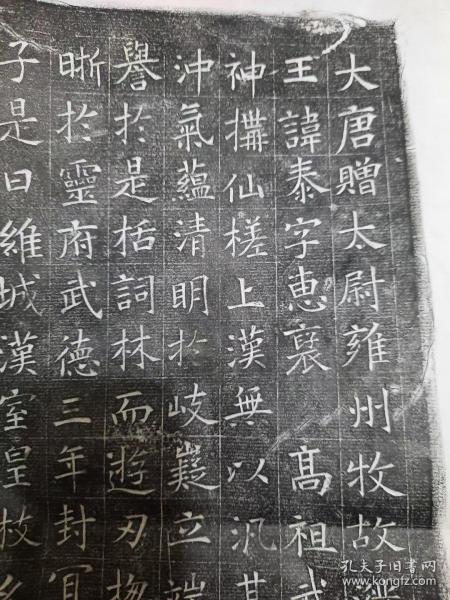 大唐贈太尉雍州牧故
王諱泰字惠褒　高祖武
神搆仙槎上漢無以汎其
沖氣蘊清明於岐嶷立端
譽於是栝詞林而遊刃
晣於靈府武德三年封宜
子是曰維城漢室皇枝
孔夫子旧书网